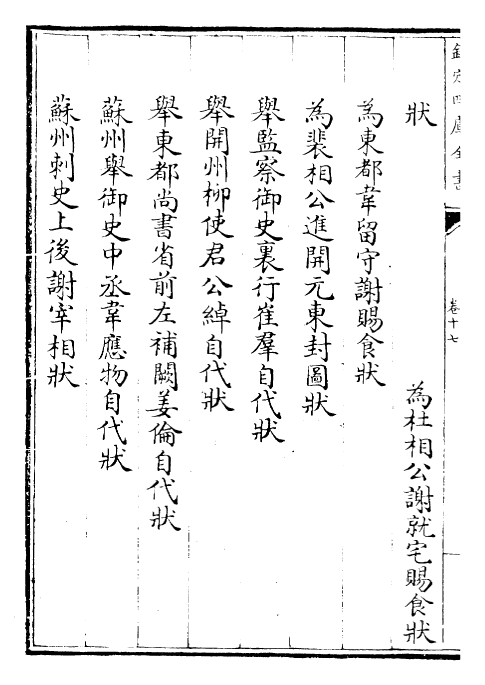 欽定四庫全書
卷十七
狀
為杜相公謝就宅賜食狀
為東都韋留守謝賜食狀
為裴相公進開元東封圖狀
舉監察御史裏行崔羣自代狀
舉開州柳使君公綽自代狀
舉東都尚書省前左補闕姜倫自代狀
蘇州舉御史中丞韋應物自代狀
蘇州刺史上後謝宰相狀